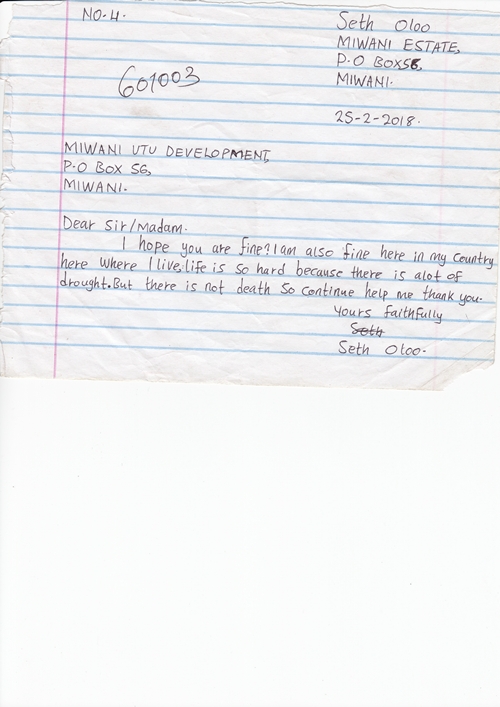 NO.4.
Seth Oloo
MIWANI ESTATE,
P.O BOX 56,
MIWANI.
601003
25-2-2018.
MIWANI UTU DEVELOPMENT,
P.O BOX 56,
MIWANI.
Dear Sir/Madam.
I hope you are fine? I am also fine here in my country
here where I live, life is so hard because there is alot of
drought. But there is not death so continue help me thank you.
Yours faithfully
Seth
Seth Oloo.